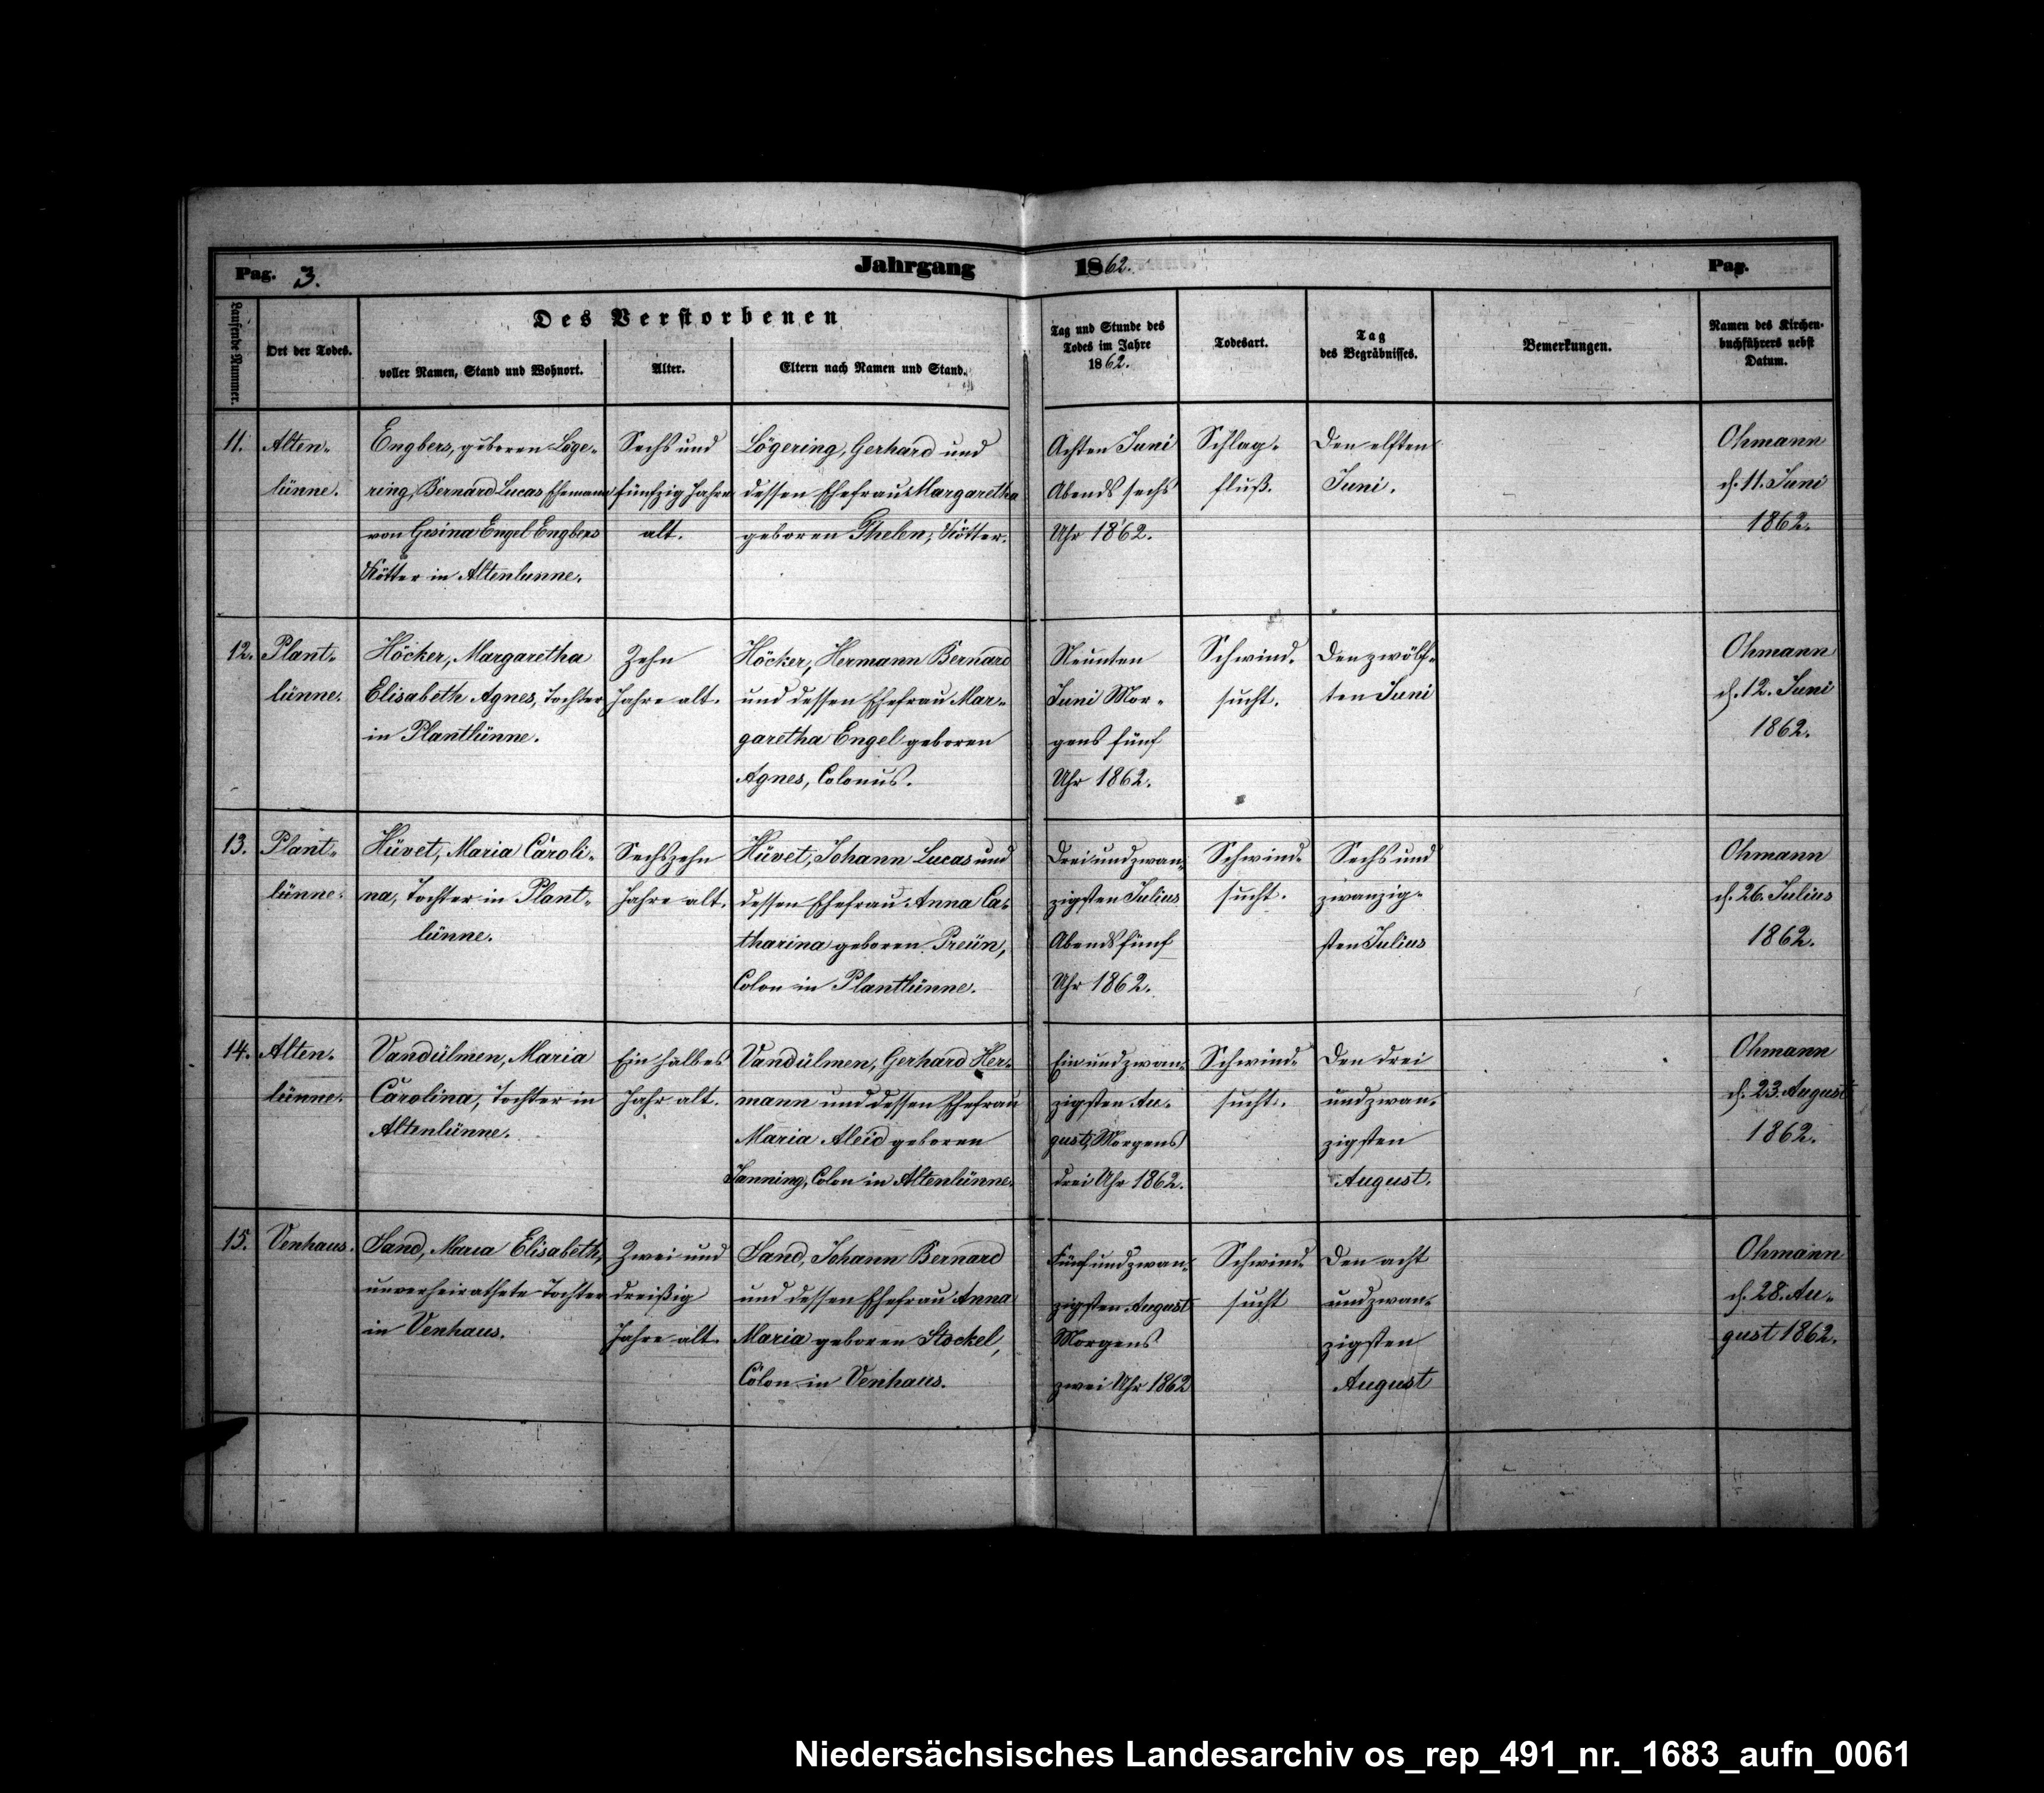 Pag. 3. Jahrgang 1862. Pag.
Laufende Nummer.
Ort der Todes.
Des Verstorbenen
voller Namen, Stand und Wohnort.
Alter.
Eltern nach Namen und Stand.
Tag und Stunde des
Todes im Jahre
1862.
Todesart.
Tag
des Begräbnisses.
Bemerkungen.
Namen des Kirchen-
buchführers nebst
Datum.
11.
Alten-
lünne.
Engbers, geboren Löge-
ring, Bernard Lucas Ehemann
von Gesina Engel Engbers
Kötter in Altenlunne.
Sechs und
fünfzig Jahre
alt.
Lögering, Gerhard und
dessen Ehefrau Margaretha
geboren Thelen, Kötter.
Achten Juni
Abends sechs
Uhr 1862.
Schlag-
fluß.
Den elften
Juni.
Ohmann
d. 11. Juni
1862.
12.
Plant-
lünne.
Höcker, Margaretha
Elisabeth Agnes, Tochter
in Plantlünne.
Zehn
Jahre alt.
Höcker, Hermann Bernard
und dessen Ehefrau Mar-
garetha Engel geboren
Agnes, Colonus.
Neunten
Juni Mor-
gens fünf
Uhr 1862.
Schwind-
sucht.
Den zwölf-
ten Juni
Ohmann
d. 12. Juni
1862.
13.
Plant-
lünne.
Hüvet, Maria Caroli-
na, Tochter in Plant-
lünne.
Sechszehn
Jahre alt.
Hüvet, Johann Lucas und
dessen Ehefrau Anna Ca-
tharina geboren Preün,
Colon in Plantlünne.
Drei und zwan-
zigsten Julius
Abends fünf
Uhr 1862.
Schwind-
sucht.
Sechs und
zwanzig-
sten Julius
Ohmann
d. 26. Julius
1862.
14.
Alten-
lünne.
Vandülmen, Maria
Carolina, Tochter in
Altenlünne.
Ein halbes
Jahr alt.
Vandülmen, Gerhard Her-
mann und dessen Ehefrau
Maria Aleid geboren
Janning, Colon in Altenlünne.
Ein und zwan-
zigsten Au-
gust, Morgens
drei Uhr 1862.
Schwind-
sucht.
Den drei
und zwan-
zigsten
August.
Ohmann
d. 23. August
1862.
15.
Venhaus.
Sand, Maria Elisabeth,
unverheirathete Tochter
in Venhaus.
Zwei und
dreißig
Jahre alt.
Sand, Johann Bernard
und dessen Ehefrau Anna
Maria geboren Stockel,
Colon in Venhaus.
Fünf und zwan-
zigsten August
Morgens
zwei Uhr 1862
Schwind-
sucht
Den acht
und zwan-
zigsten
August
Ohmann
d. 28. Au-
gust 1862.
Niedersächsisches Landesarchiv os_rep_491_nr._1683_aufn_0061